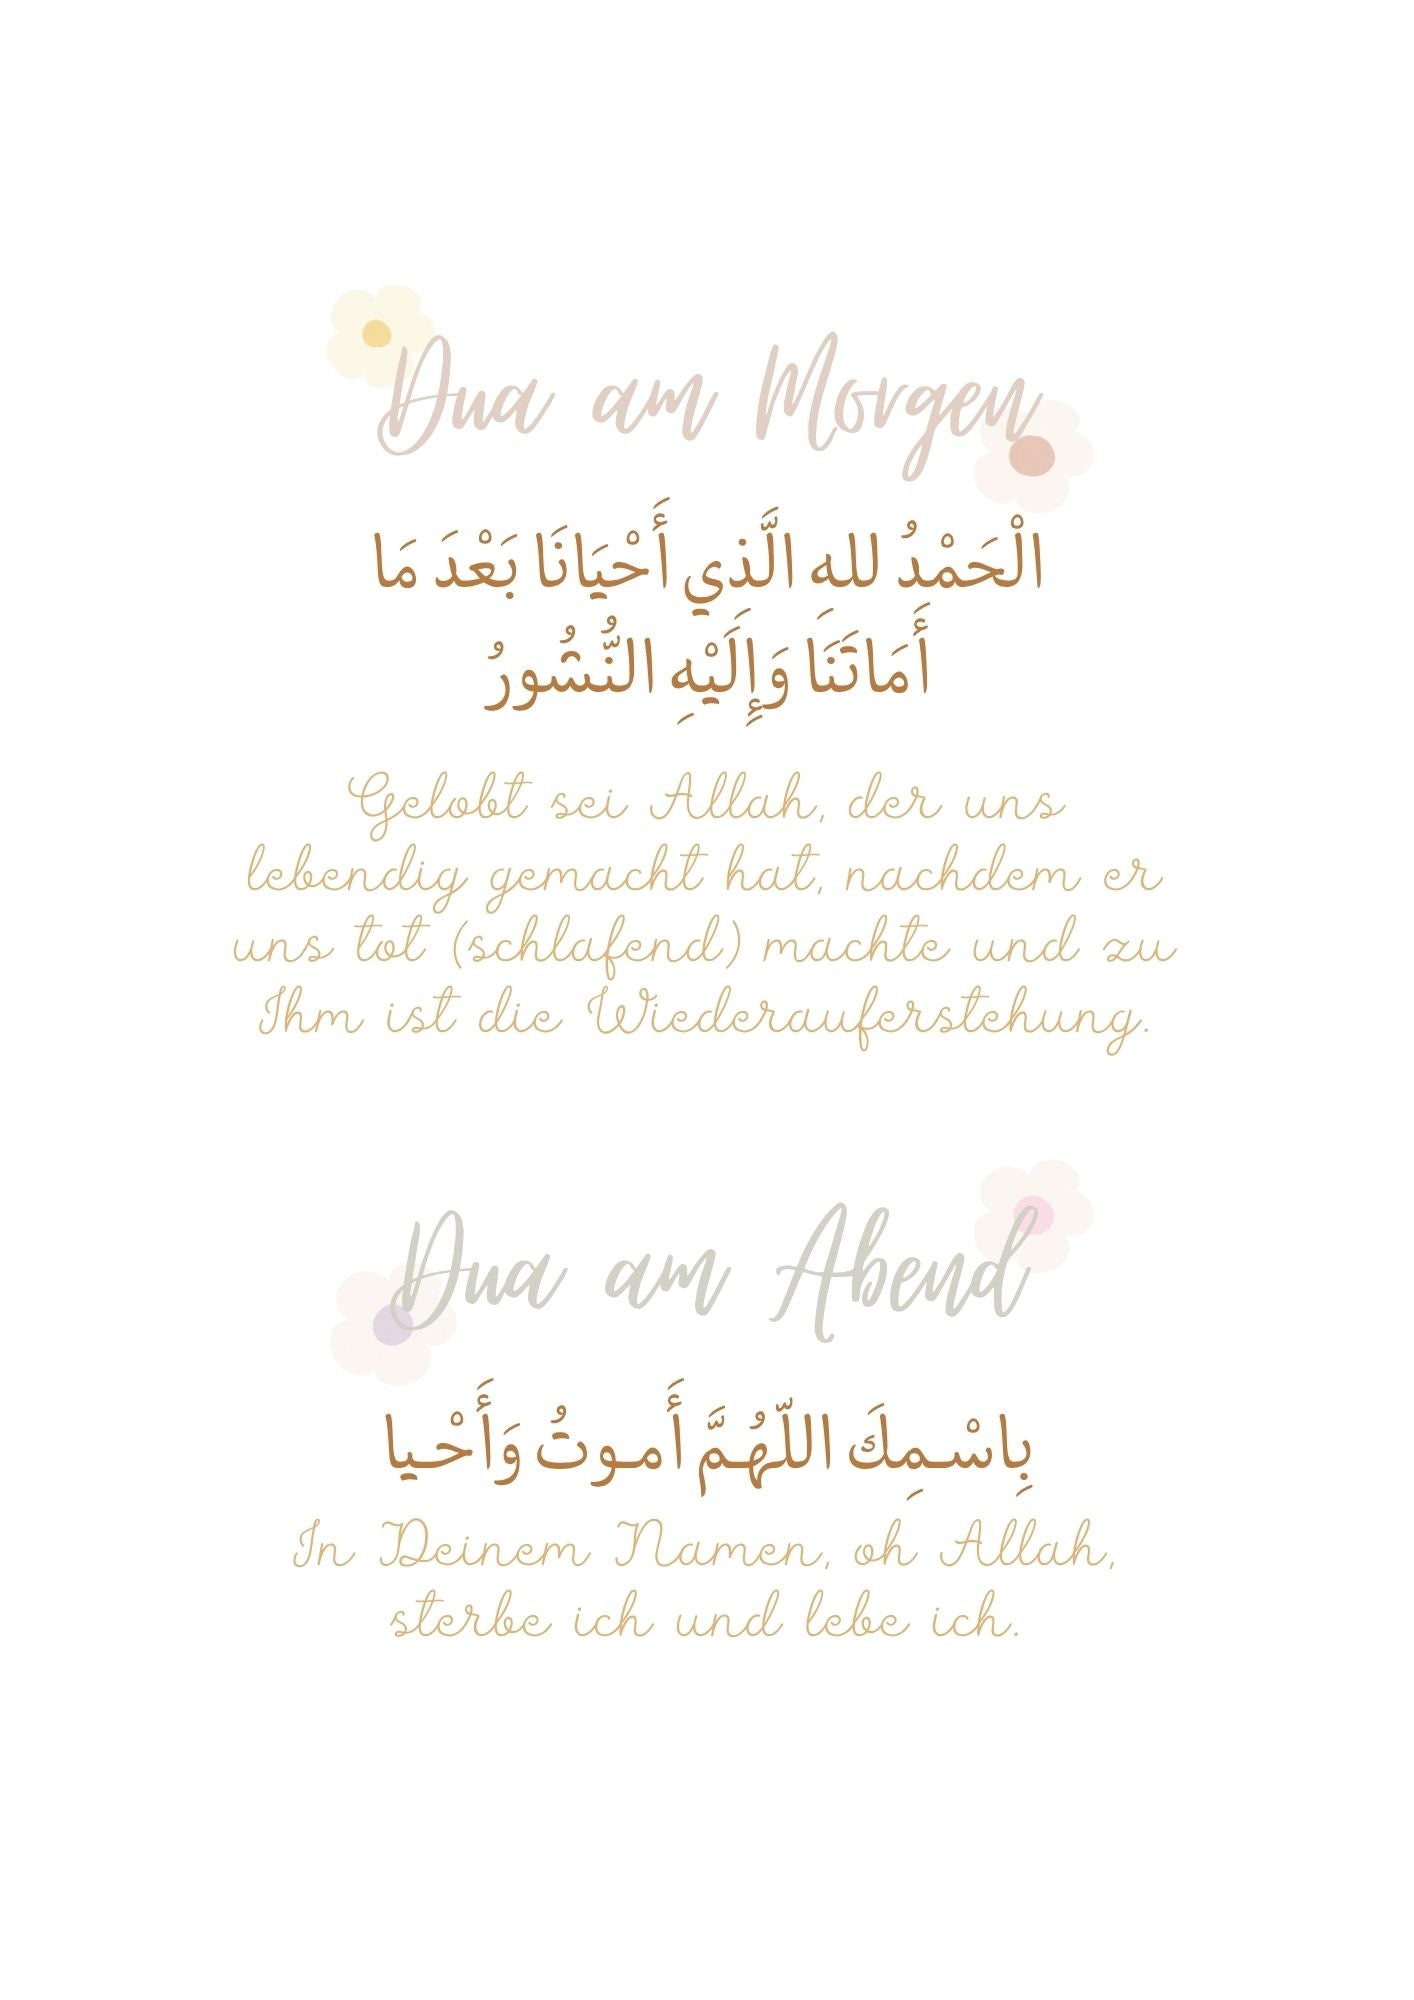 Dua am Morgen
الْحَمْدُ لله الَّذي أَحْيَانَا بَعْدَ مَا
أَمَاتَنَا وَإِلَيْهِ النُّشُورُ
Gelobt sei Allah, der uns
lebendig gemacht hat, nachdem er
uns tot (schlafend) machte und zu
Ihm ist die Wiederauferstehung.
Dua am Abend
بِاسْـمِكَ اللّهُـمَّ أَمـوتُ وَأَحْـيا
In Deinem Namen, oh Allah,
sterbe ich und lebe ich.